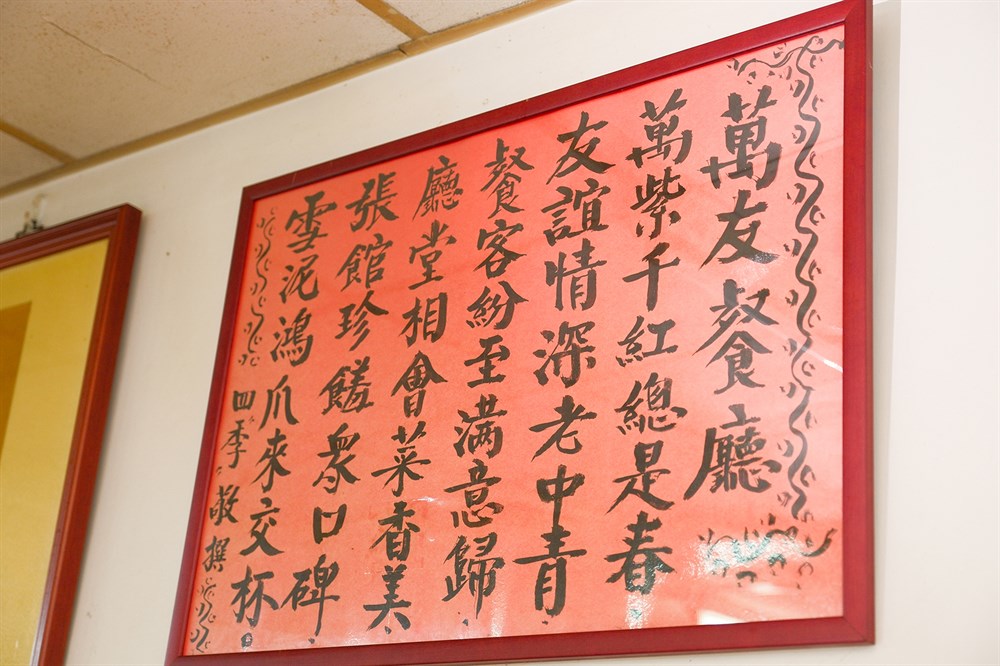 萬友餐廳
萬紫千紅總是春
友誼情深老中青
餐客紛至滿意歸
廳堂相會菜香美
張館珍饈眾口碑
雪泥鴻爪來交杯
四季敬撰